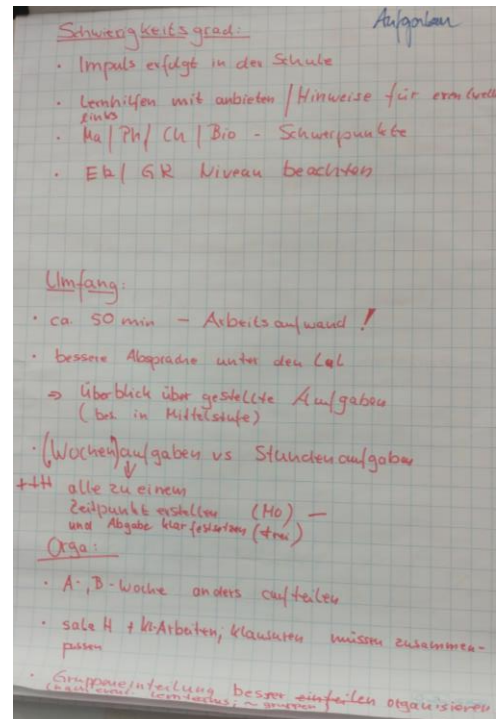 Aufgaben
Schwierigkeitsgrad:
· Impuls erfolgt in der Schule
· Lernhilfen mit anbieten / Hinweise für eventuelle
links
· Ma / Ph / Ch / Bio - Schwerpunkte
· Ek / GR Niveau beachten
Umfang:
· ca. 50 min - Arbeitsaufwand !
· bessere Absprache unter den LuL
⇒ Überblick über gestellte Aufgaben
(bes. in Mittelstufe)
· (Wochen)aufgaben vs Stundenaufgaben
alle zu einem
Zeitpunkt erstellen (Mo) —
und Abgabe klar festsetzen (frei)
Orga:
· A-, B-Woche anders aufteilen
· H + K-Arbeiten, Klausuren müssen zusammen-
passen
· Gruppeneinteilung besser einfeilen organisieren